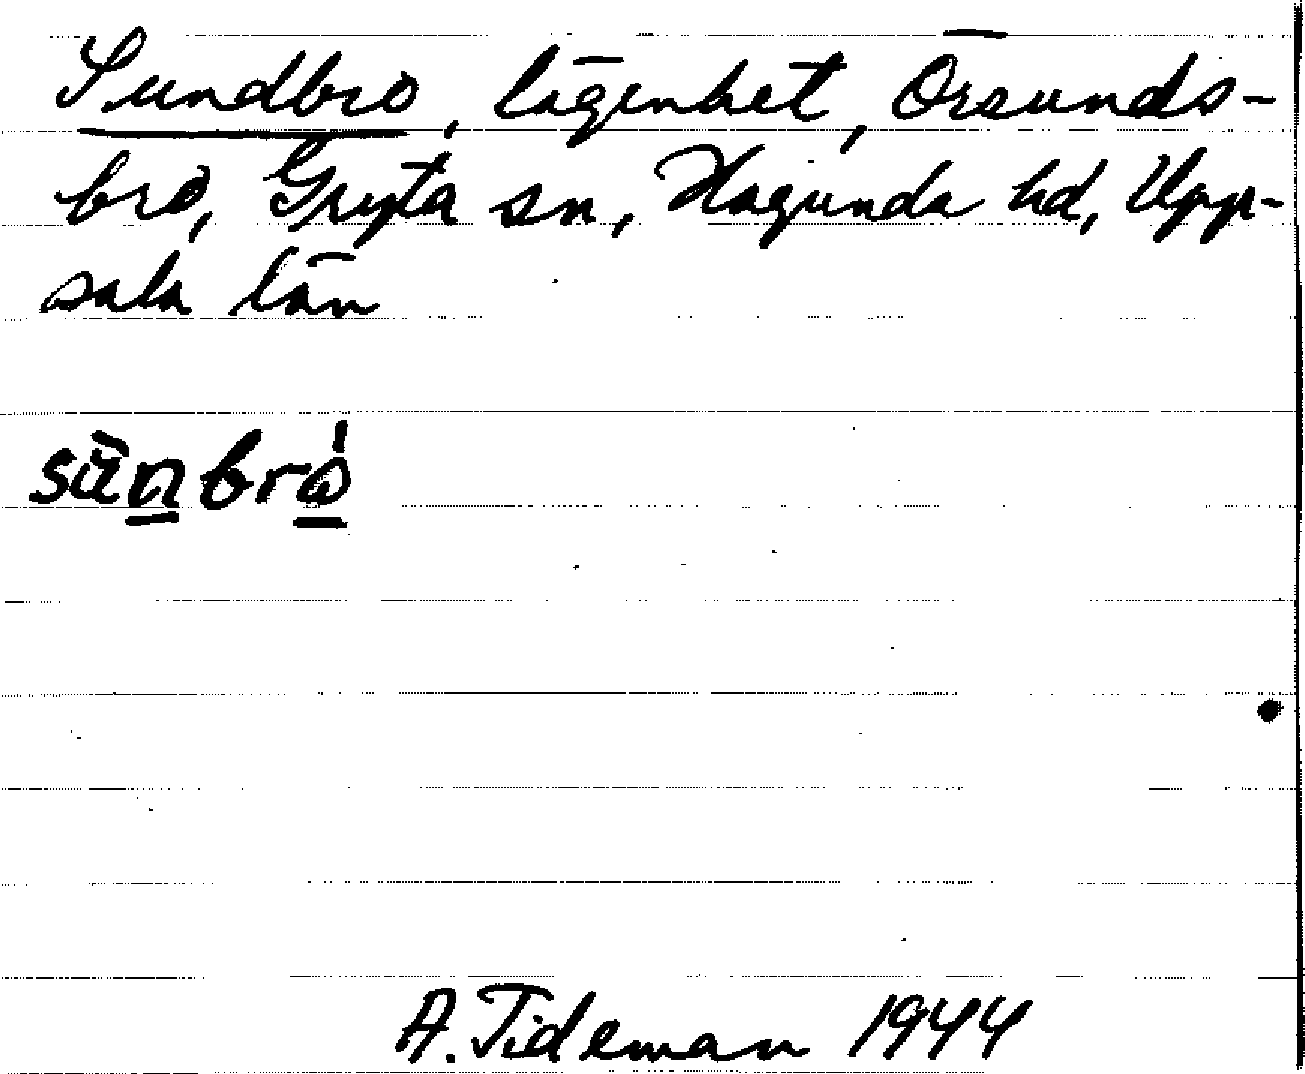 Sundbro, lägenhet, Örsunds-
bro, Gryta sn, Hagunda hd, Upp-
sala län
sùnbró
A. Tideman 1944